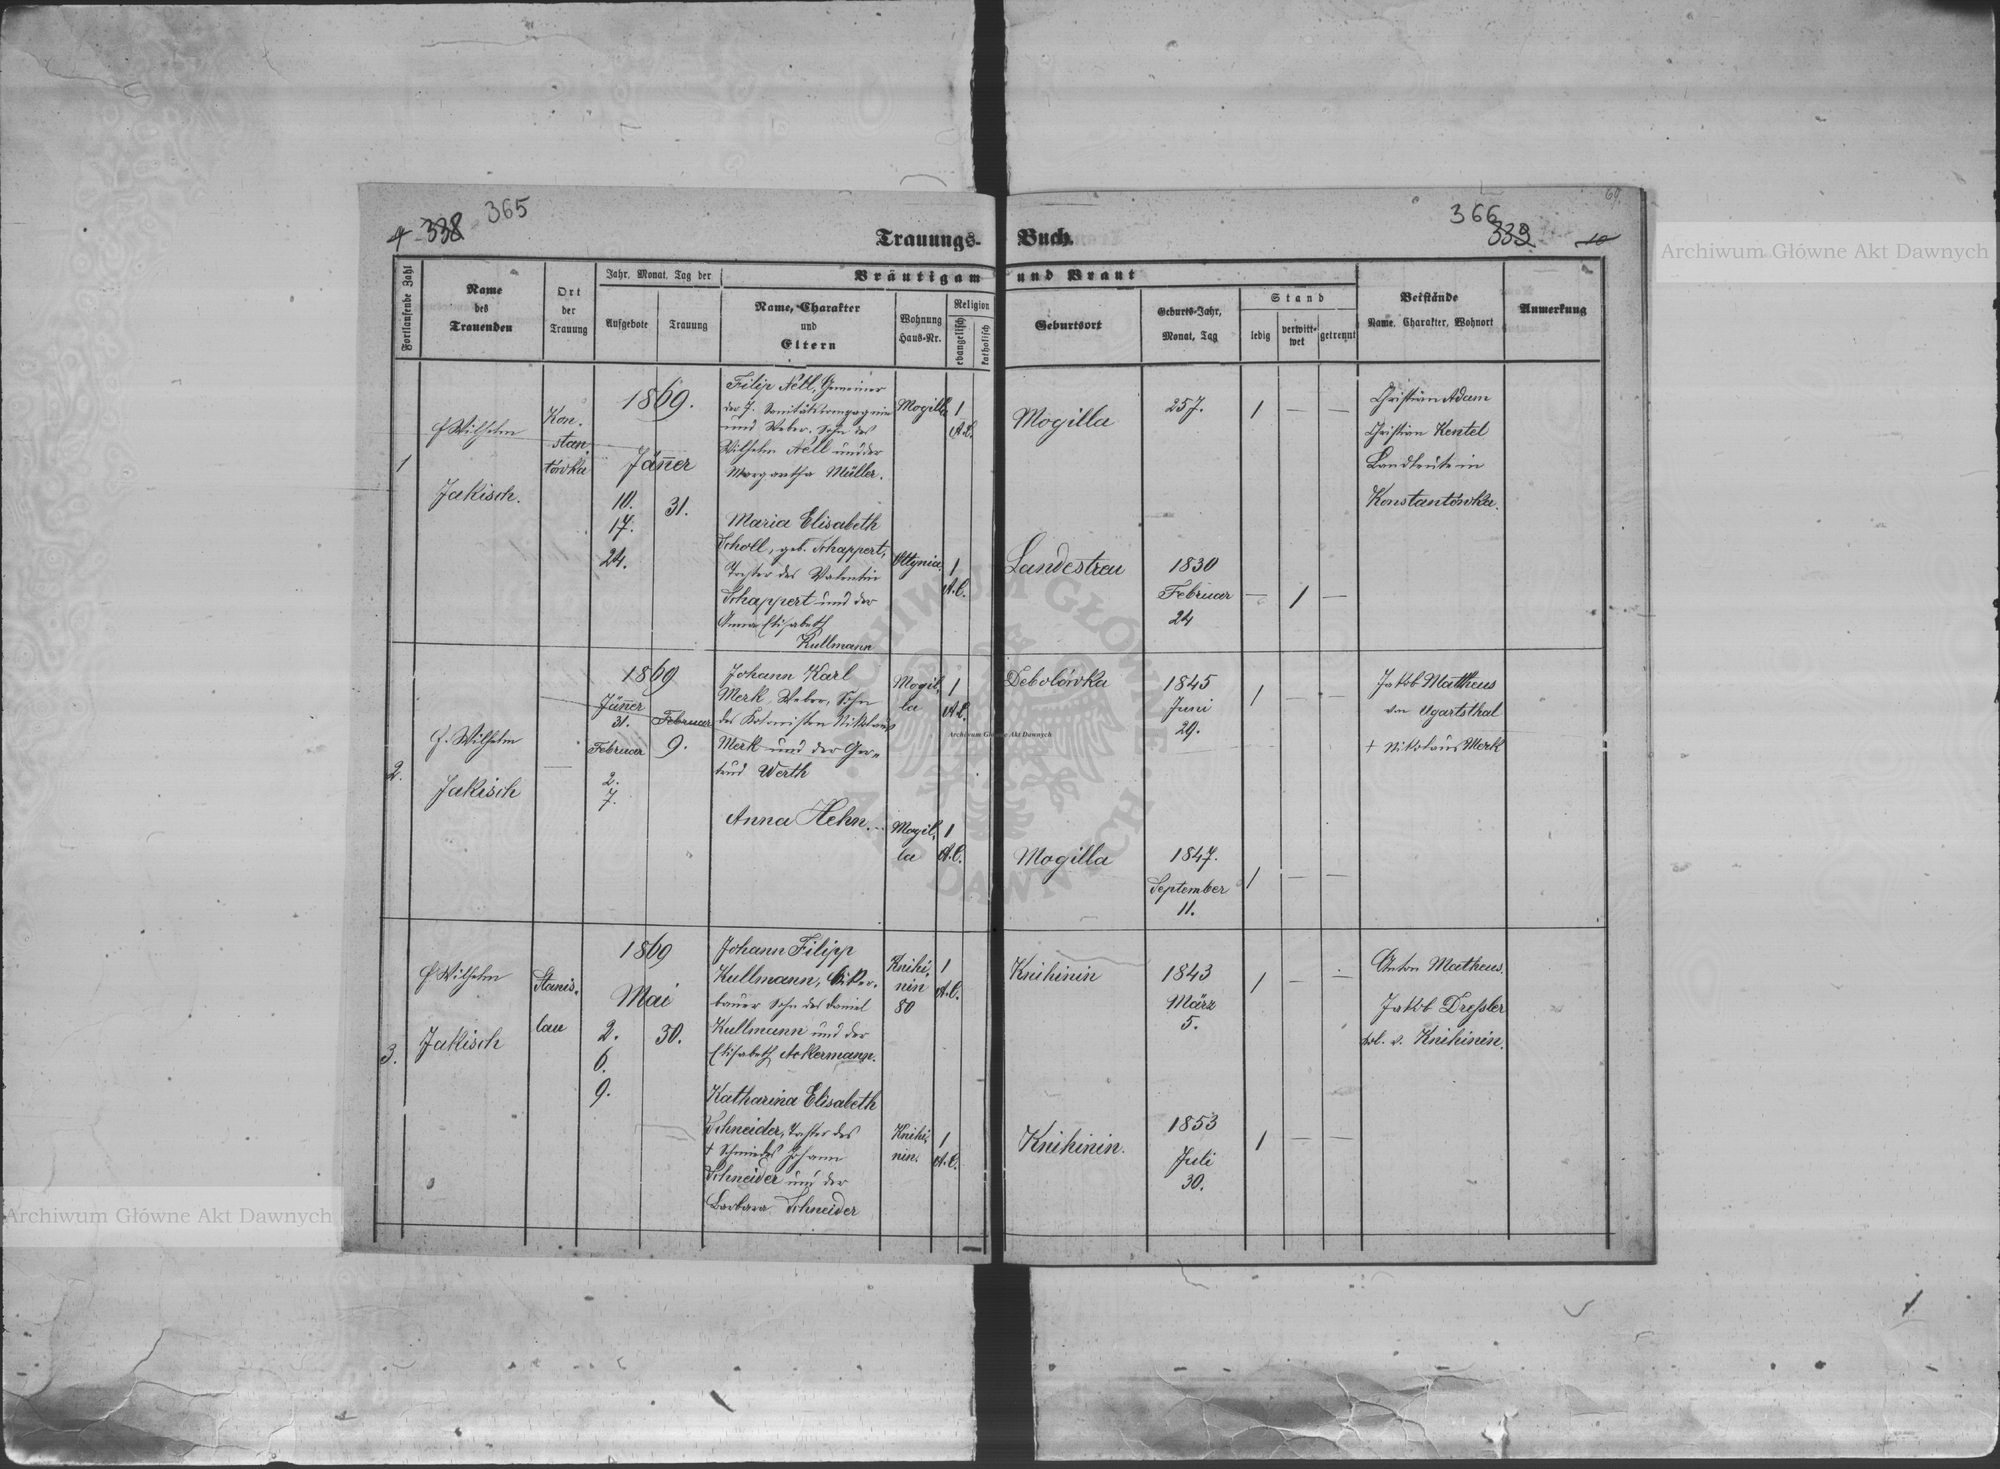 365
338
366
339
10
69.
Trauungs-Buch.
Fortlaufende Zahl
Name
des
Trauenden
Ort
der
Trauung
Jahr, Monat, Tag der
Aufgebote
Trauung
Bräutigam und Braut
Name, Charakter
und
Eltern
Wohnung
Haus-Nr.
Religion
evangelisch
katholisch
Geburtsort
Geburts-Jahr,
Monat, Tag
Stand
ledig
verwitt-
wet
getrennt
Beistände
Name, Charakter, Wohnort
Anmerkung
1
Wilhelm
Jakisch.
Kon-
stan
tówka
1869.
Jäner
10.
17.
24.
31.
Filip Nell, Gemeiner
der 7. Sanitätskompagnie
und Weber. Sohn des
Wilhelm Nell und der
Margaretha Müller.
Mogilla
1
A.C.
Mogilla
25 J.
1 — —
Christian Adam
Christian Kentel
Landleute in
Konstantówka.
Maria Elisabeth
Scholl, geb. Schappert,
Tochter des Valentin
Schappert und der
Anna Elisabeth
Kullmann
Ottynia.
1
A.C.
Landestreu
1830
Februar
24
— 1 —
2.
Wilhelm
Jakisch
—
1869
Jäner
31.
Februar
2.
7.
Februar
9.
Johann Karl
Merk, Weber, Sohn
des Kolonisten Nikolaus
Merk und der Ger-
trud Werth
Mogil-
la
1
A.C.
Debolówka
1845
Juni
29.
1 — —
Jakob Mattheus
von Ugartsthal
+ Nikolaus Merk
Anna Hehn.
Mogil-
la
1
A.C.
Mogilla
1847.
September
11.
1 — —
3.
Wilhelm
Jakisch
Stanis-
lau
1869
Mai
2.
6.
9.
30.
Johann Filipp
Kullmann, Acker-
bauer Sohn des Daniel
Kullmann und der
Elisabeth Ackermann.
Knihi-
nin
80
1
A.C.
Knihinin
1843
März
5.
1 — —
Anton Matheus.
Jakob Dressler
v. Knihinin.
Katharina Elisabeth
Schneider, Tochter des
+ Schmiedes Johann
Schneider und der
Barbara Schneider
Knihi-
nin.
1
A.C.
Knihinin.
1853
Juli
30.
1 — —
Archiwum Główne Akt Dawnych
Archiwum Główne Akt Dawnych
Archiwum Główne Akt Dawnych
ARCHIWUM GŁÓWNE AKT DAWNYCH